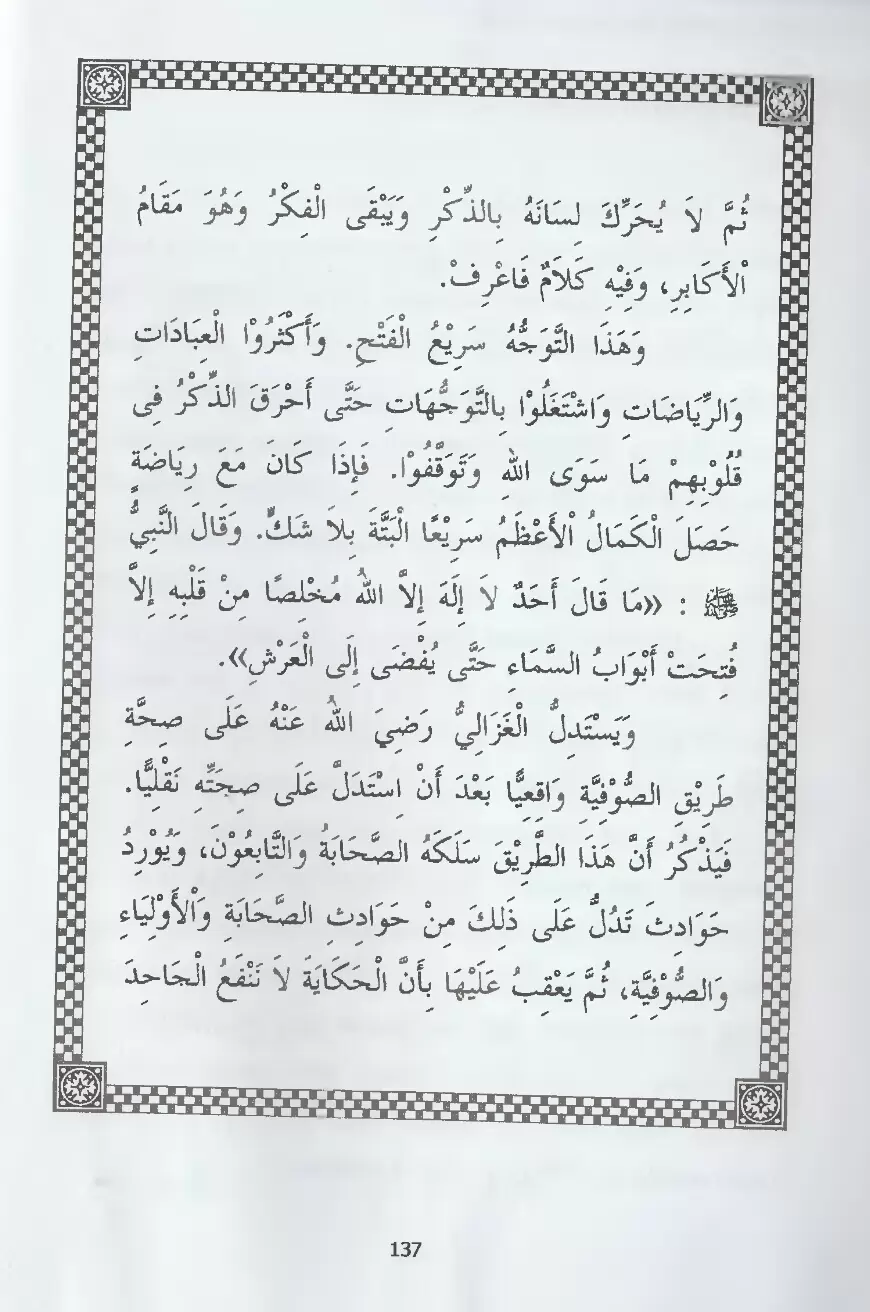 ثُمَّ لاَ يُحَرِّكَ لِسَانَهُ بِالذِّكْرِ وَيَبْقَى الْفِكْرُ وَهُوَ مَقَامُ
الْأَكَابِرِ، وَفِيْهِ كَلاَمٌ فَاعْرِفْ.
وَهَذَا التَّوَجُّهُ سَرِيْعُ الْفَتْحِ. وَأَكْثَرُوْا الْعِبَادَاتِ
وَالرِّيَاضَاتِ وَاشْتَغَلُوْا بِالتَّوَجُّهَاتِ حَتَّى أَحْرَقَ الذِّكْرُ فِى
قُلُوْبِهِمْ مَا سَوَى اللهِ وَتَوَقَّفُوْا. فَإِذَا كَانَ مَعَ رِيَاضَةٍ
حَصَلَ الْكَمَالُ الْأَعْظَمُ سَرِيْعًا الْبَتَّةَ بِلاَ شَكٍّ. وَقَالَ النَّبِيُّ
ﷺ : «مَا قَالَ أَحَدٌ لاَ إِلَهَ إِلاَّ اللهُ مُخْلِصًا مِنْ قَلْبِهِ إِلاَّ
فُتِحَتْ أَبْوَابُ السَّمَاءِ حَتَّى يُفْضَى إِلَى الْعَرْشِ».
وَيَسْتَدِلُّ الْغَزَالِيُّ رَضِيَ اللهُ عَنْهُ عَلَى صِحَّةِ
طَرِيْقِ الصُّوْفِيَّةِ وَاقِعِيًّا بَعْدَ أَنْ اسْتَدَلَّ عَلَى صِحَّتِهِ نَقْلِيًّا.
فَيَذْكُرُ أَنَّ هَذَا الطَّرِيْقَ سَلَكَهُ الصَّحَابَةُ وَالتَّابِعُوْنَ، وَيُوْرِدُ
حَوَادِثَ تَدُلُّ عَلَى ذَلِكَ مِنْ حَوَادِثِ الصَّحَابَةِ وَالْأَوْلِيَاءِ
وَالصُّوْفِيَّةِ، ثُمَّ يَعْقِبُ عَلَيْهَا بِأَنَّ الْحِكَايَةَ لاَ تَنْفَعُ الْجَاحِدَ
137